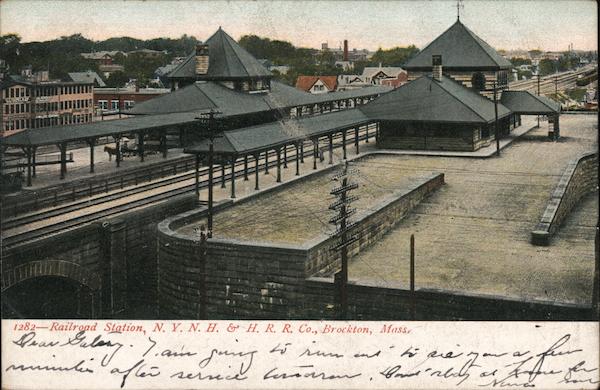 1282—Railroad Station, N. Y. N. H. & H. R. R. Co., Brockton, Mass.
Dear I am going to run out to see you a few
minutes after service tomorrow. Can't stay at home for